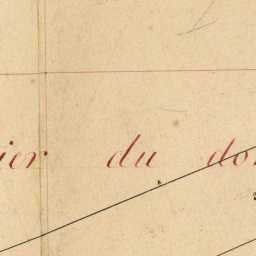 ier du do